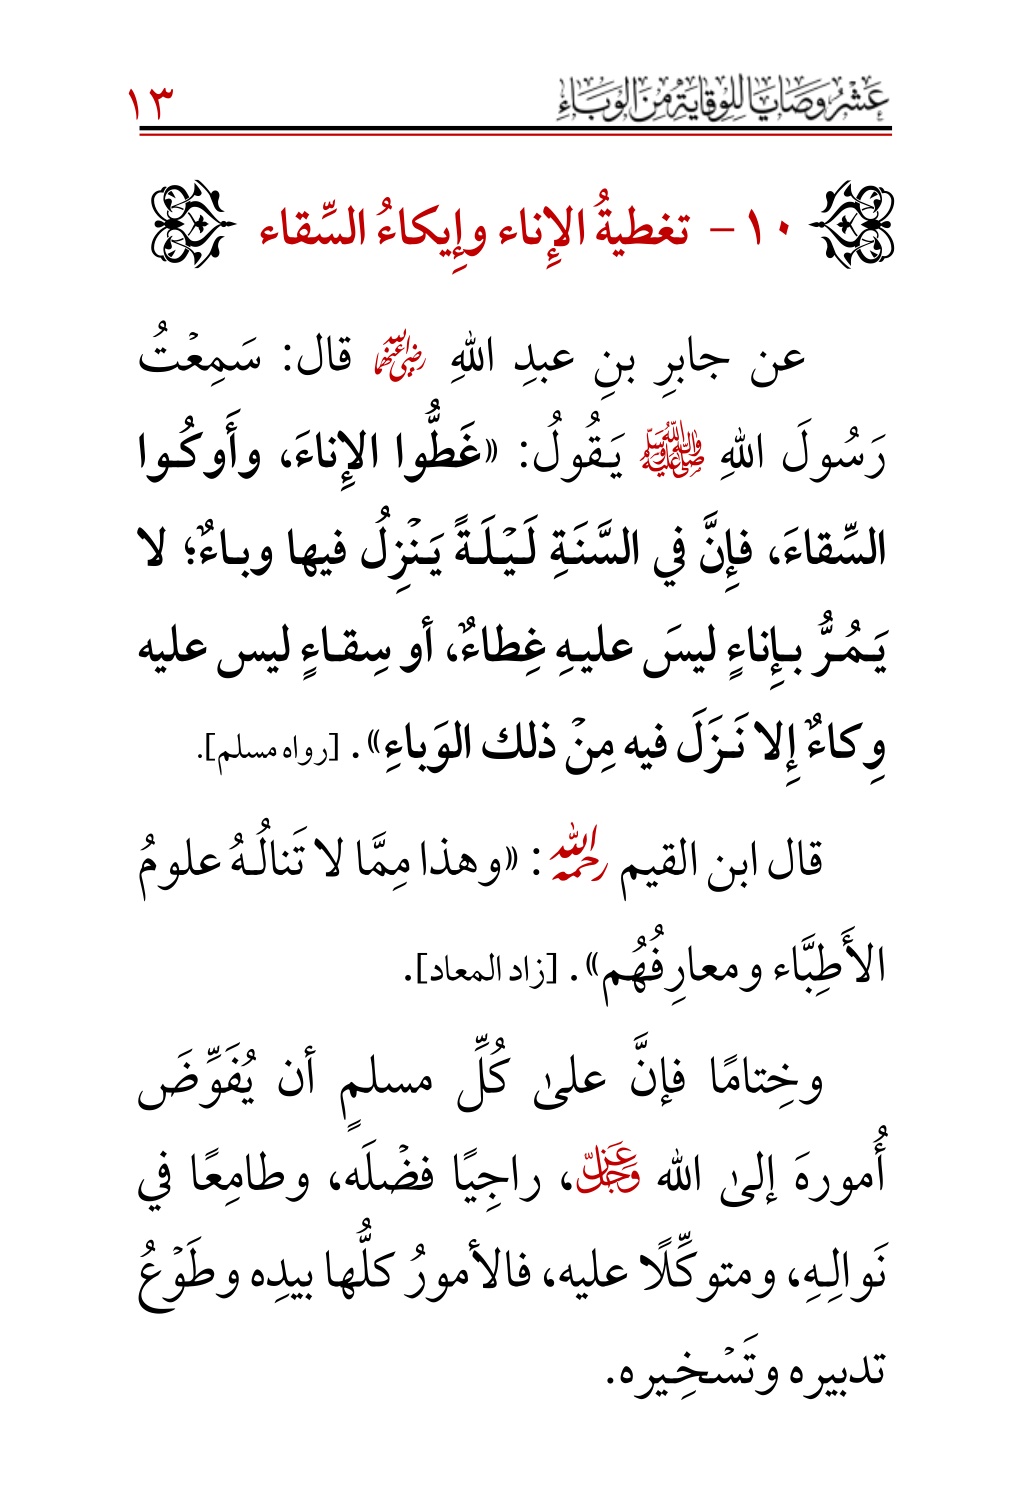 عَشْرُ وَصَايَا لِلْوِقَايَةِ مِنَ الْوَبَاءِ ١٣
١٠ - تغطيةُ الإِناء وإِيكاءُ السِّقاء
عن جابرِ بنِ عبدِ اللهِ رضي الله عنهما قال: سَمِعْتُ
رَسُولَ اللهِ ﷺ يَقُولُ: «غَطُّوا الإِناءَ، وأَوكُوا
السِّقاءَ، فإِنَّ في السَّنَةِ لَيْلَةً يَنْزِلُ فيها وباءٌ؛ لا
يَمُرُّ بإِناءٍ ليسَ عليهِ غِطاءٌ، أو سِقاءٍ ليس عليه
وِكاءٌ إِلا نَزَلَ فيه مِنْ ذلك الوَباءِ». [رواه مسلم].
قال ابن القيم رحمه الله: «وهذا مِمَّا لا تَنالُهُ علومُ
الأَطِبَّاء ومعارِفُهُم». [زاد المعاد].
وخِتامًا فإنَّ علىٰ كُلِّ مسلمٍ أن يُفَوِّضَ
أُمورهَ إلىٰ الله عَزَّ وَجَلَّ، راجِيًا فضْلَه، وطامِعًا في
نَوالِهِ، ومتوكِّلًا عليه، فالأمورُ كلُّها بيدِه وطَوْعُ
تدبيره وتَسْخِيره.